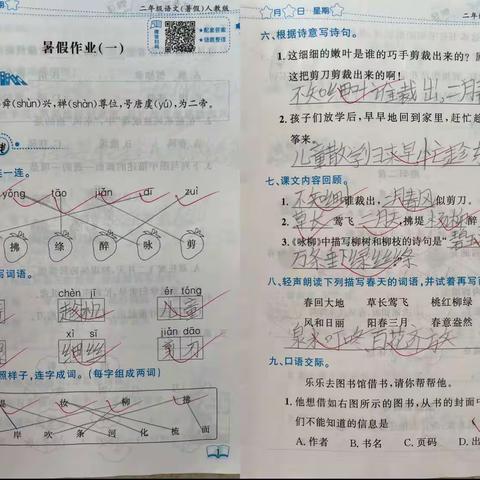 二年级语文(暑假)人教版
暑假作业(一)
微信扫码
配套答案
错题整理
舜(shùn)兴,禅(shàn)尊位,号唐虞(yú),为二帝。
连一连。
yōng tāo jiǎn dí zuì
拂 绦 醉 咏 剪
写词语。
chèn jī ér tóng
趁机 儿童
xì sī jiǎn dāo
细丝 剪刀
照样子,连字成词。(每字组成两词)
妆 柳 拂
岸 吹 条 河 化 梳 面
1
月 日 星期
二年
六、根据诗意写诗句。
1. 这细细的嫩叶是谁的巧手剪裁出来的?
这把剪刀剪裁出来的啊!
不知细叶谁裁出,二月
2. 孩子们放学后,早早地回到家里,赶忙趁
筝来。
儿童散学归来早,忙趁
七、课文内容回顾。
1. 不知细叶谁裁出,二月春风似剪刀。
2. 草长莺飞二月天,拂堤杨柳醉
3. 《咏柳》中描写柳树和柳枝的诗句是“碧玉
万条垂下绿丝绦
八、轻声朗读下列描写春天的词语,并试着再写
春回大地 草长莺飞 桃红柳绿
风和日丽 阳春三月 春意盎然
泉水叮咚 百花齐放
九、口语交际。
乐乐去图书馆借书,请你帮帮他。
1. 他想借如右图所示的图书,从书的封面中
们不能知道的信息是
A. 作者 B. 书名 C. 页码 D. 出